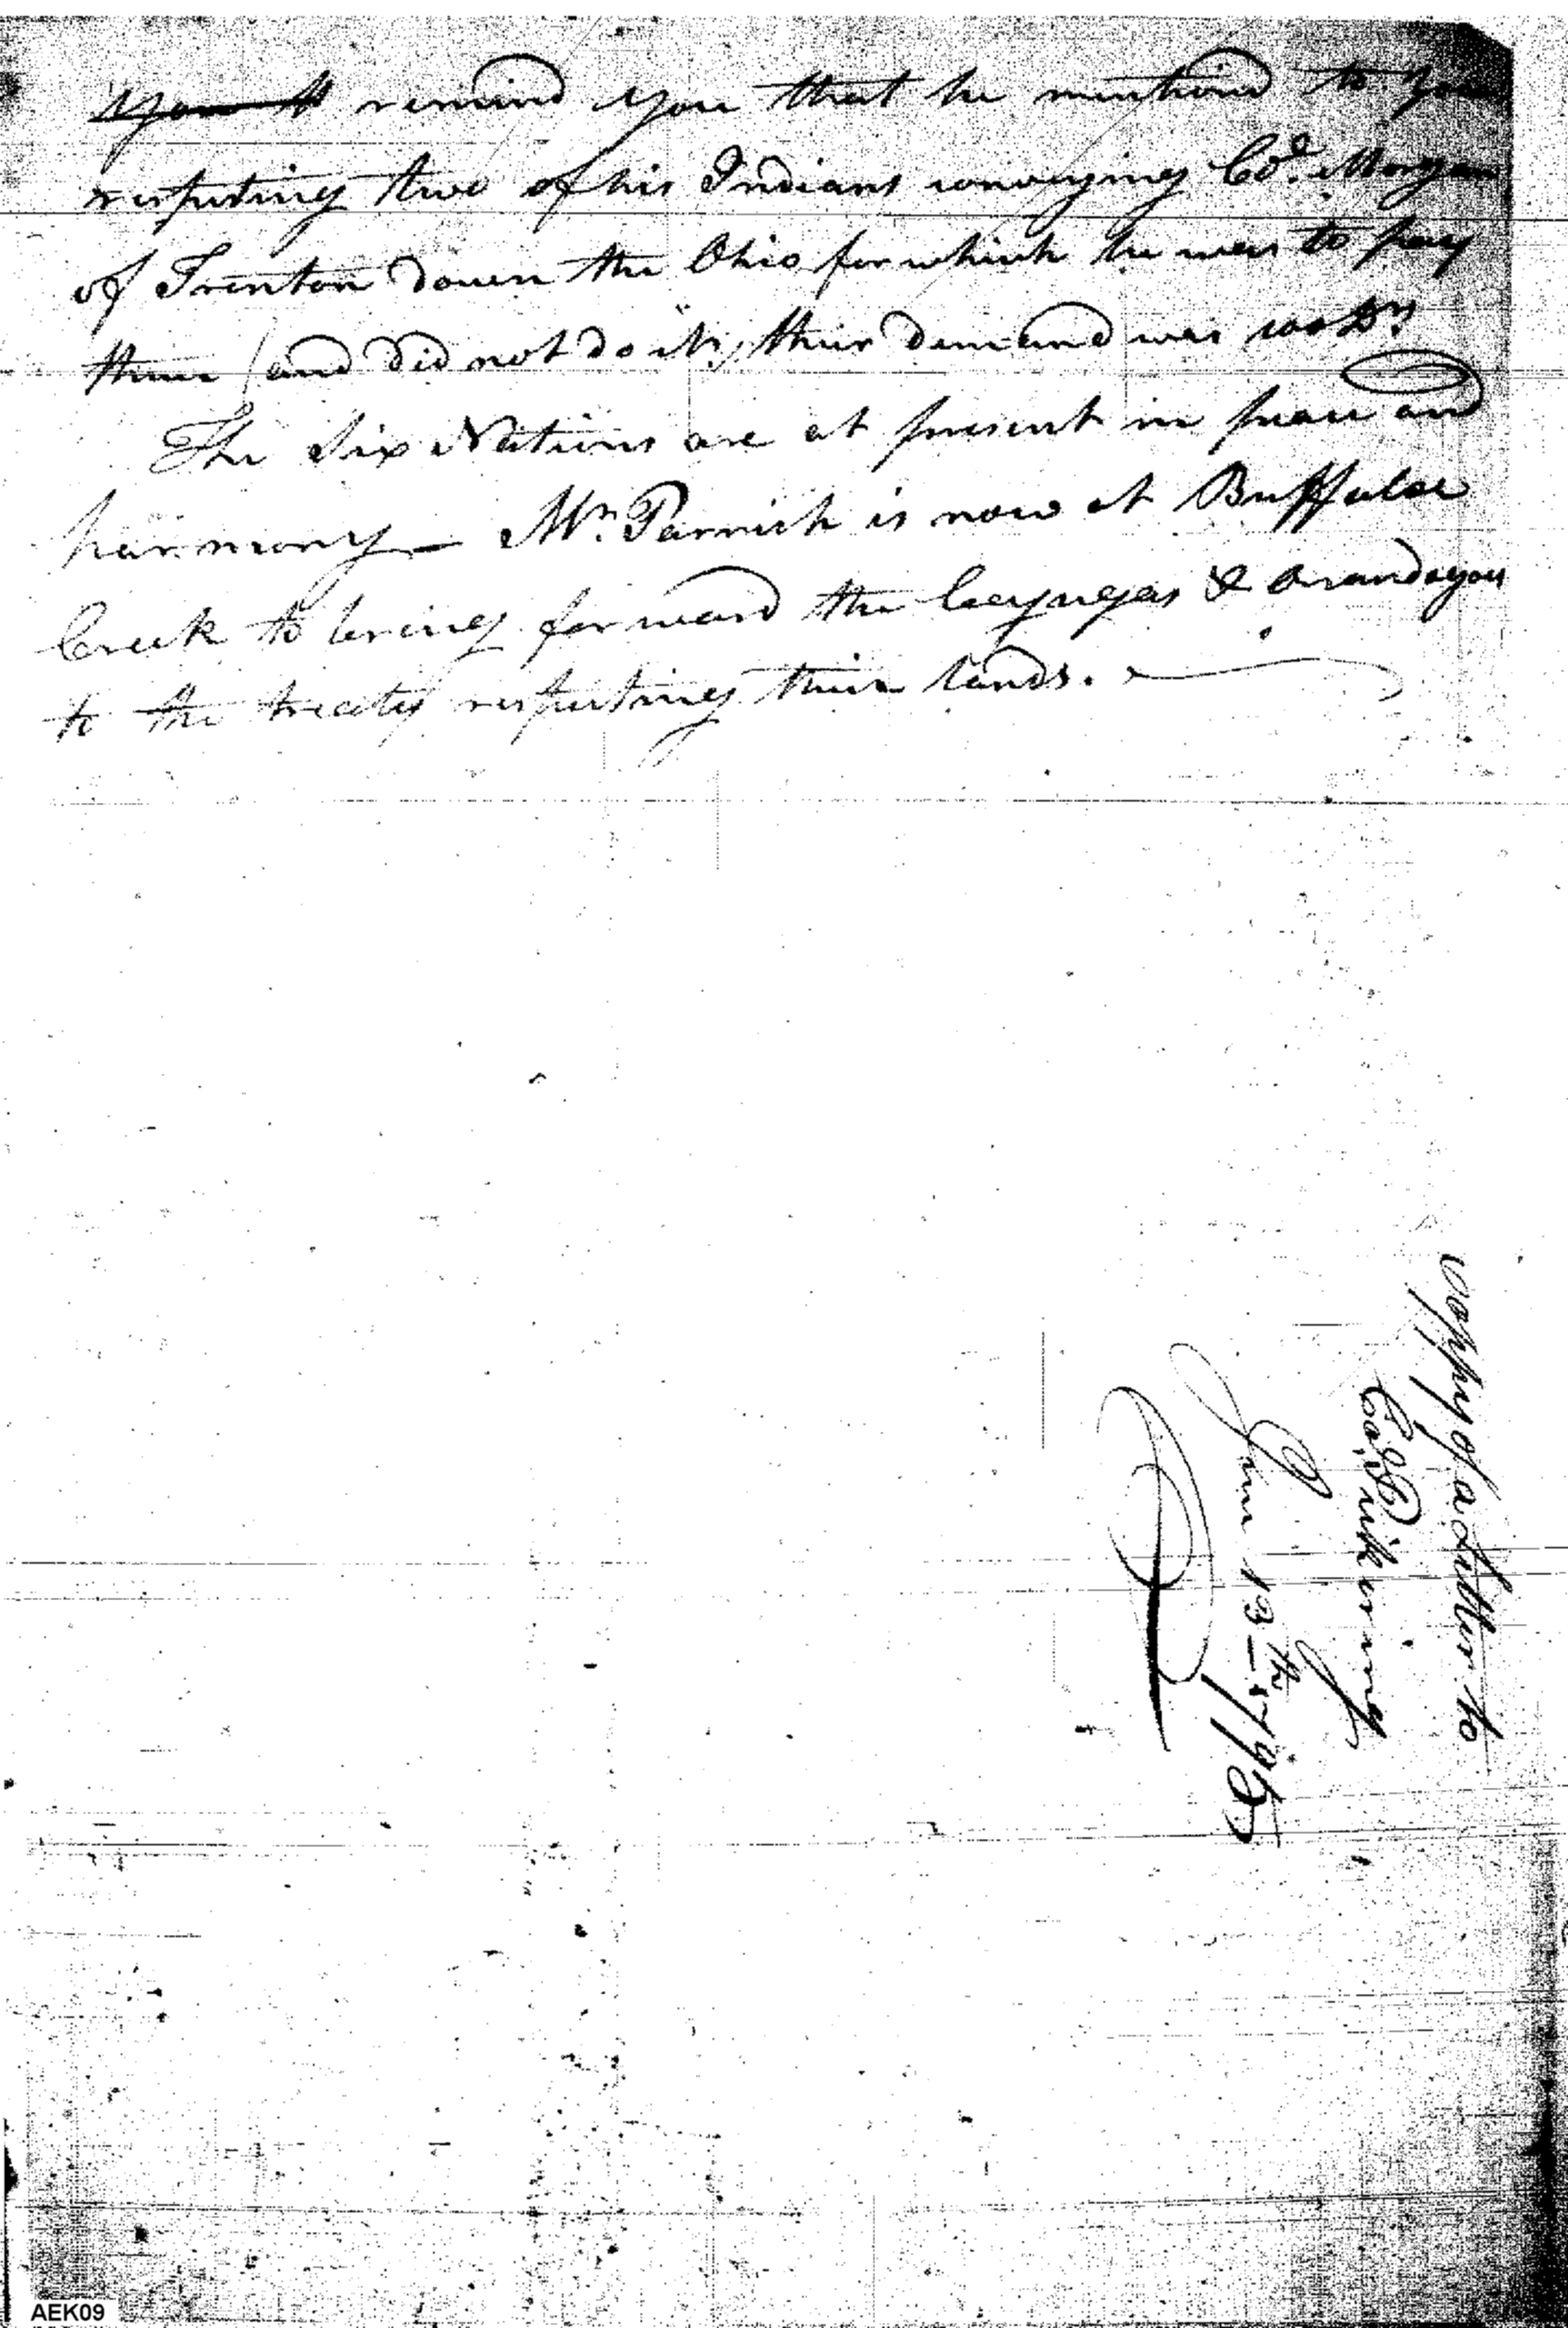 remind you that he mentioned to you
respecting two of his Indians conveying Col. Morgan
of Trenton down the Ohio for which he was to pay
them (and did not do it) their demand was 100 Drs
The Six Nations are at present in peace and
harmony — Mr. Parrish is now at Buffaloe
Creek to bring forward the Cayugas & Onandagou
to the treaty respecting their lands.
Coppy of a Letter to
Col. Pickering
Jan 13th 1795
AEK09